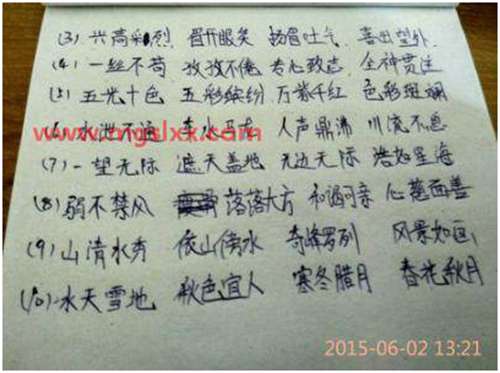 (3) 兴高彩烈 眉开眼笑 扬眉吐气 喜出望外
(4) 一丝不苟 孜孜不倦 专心致志 全神贯注
(5) 五光十色 五彩缤纷 万紫千红 色彩斑斓
www.mgslxx.com
(6) 水泄不通 车水马龙 人声鼎沸 川流不息
(7) 一望无际 遮天盖地 无边无际 浩如星海
(8) 弱不禁风 落落大方 和谒可亲 心慈面善
(9) 山清水秀 依山傍水 奇峰罗列 风景如画
(10) 水天雪地 秋色宜人 寒冬腊月 春花秋月
2015-06-02 13:21